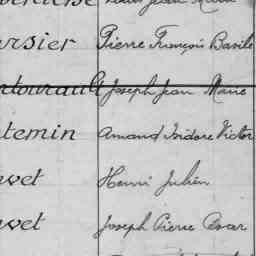 Louis Jean Marie
rsier Pierre François Basile
ntourault Joseph Jean Marie
temin Amand Isidore Victor
vet Henri Julien
vet Joseph Pierre Oscar